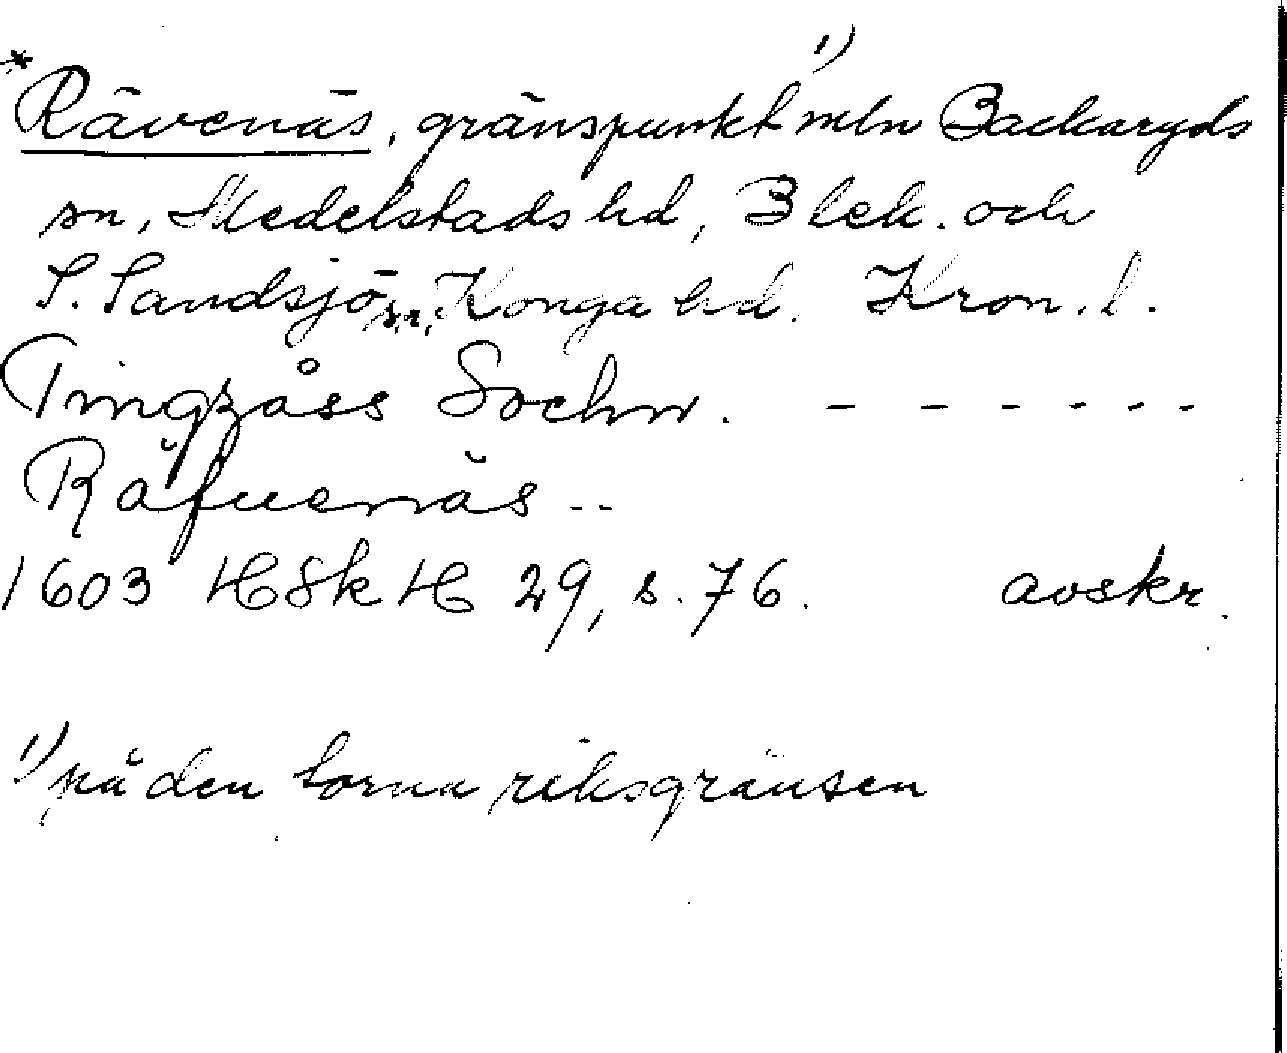 *Rävenäs, gränspunkt ¹⁾ mln Backaryds
sn, Medelstads hd, Blek. och
S. Sandsjö sn, Konga hd. Kron. l.
Tingzåss Sochn. - - - - - -
Räfuenäs - -
1603 HSkH 29, s. 76. avskr.
¹⁾ på den forna riksgränsen